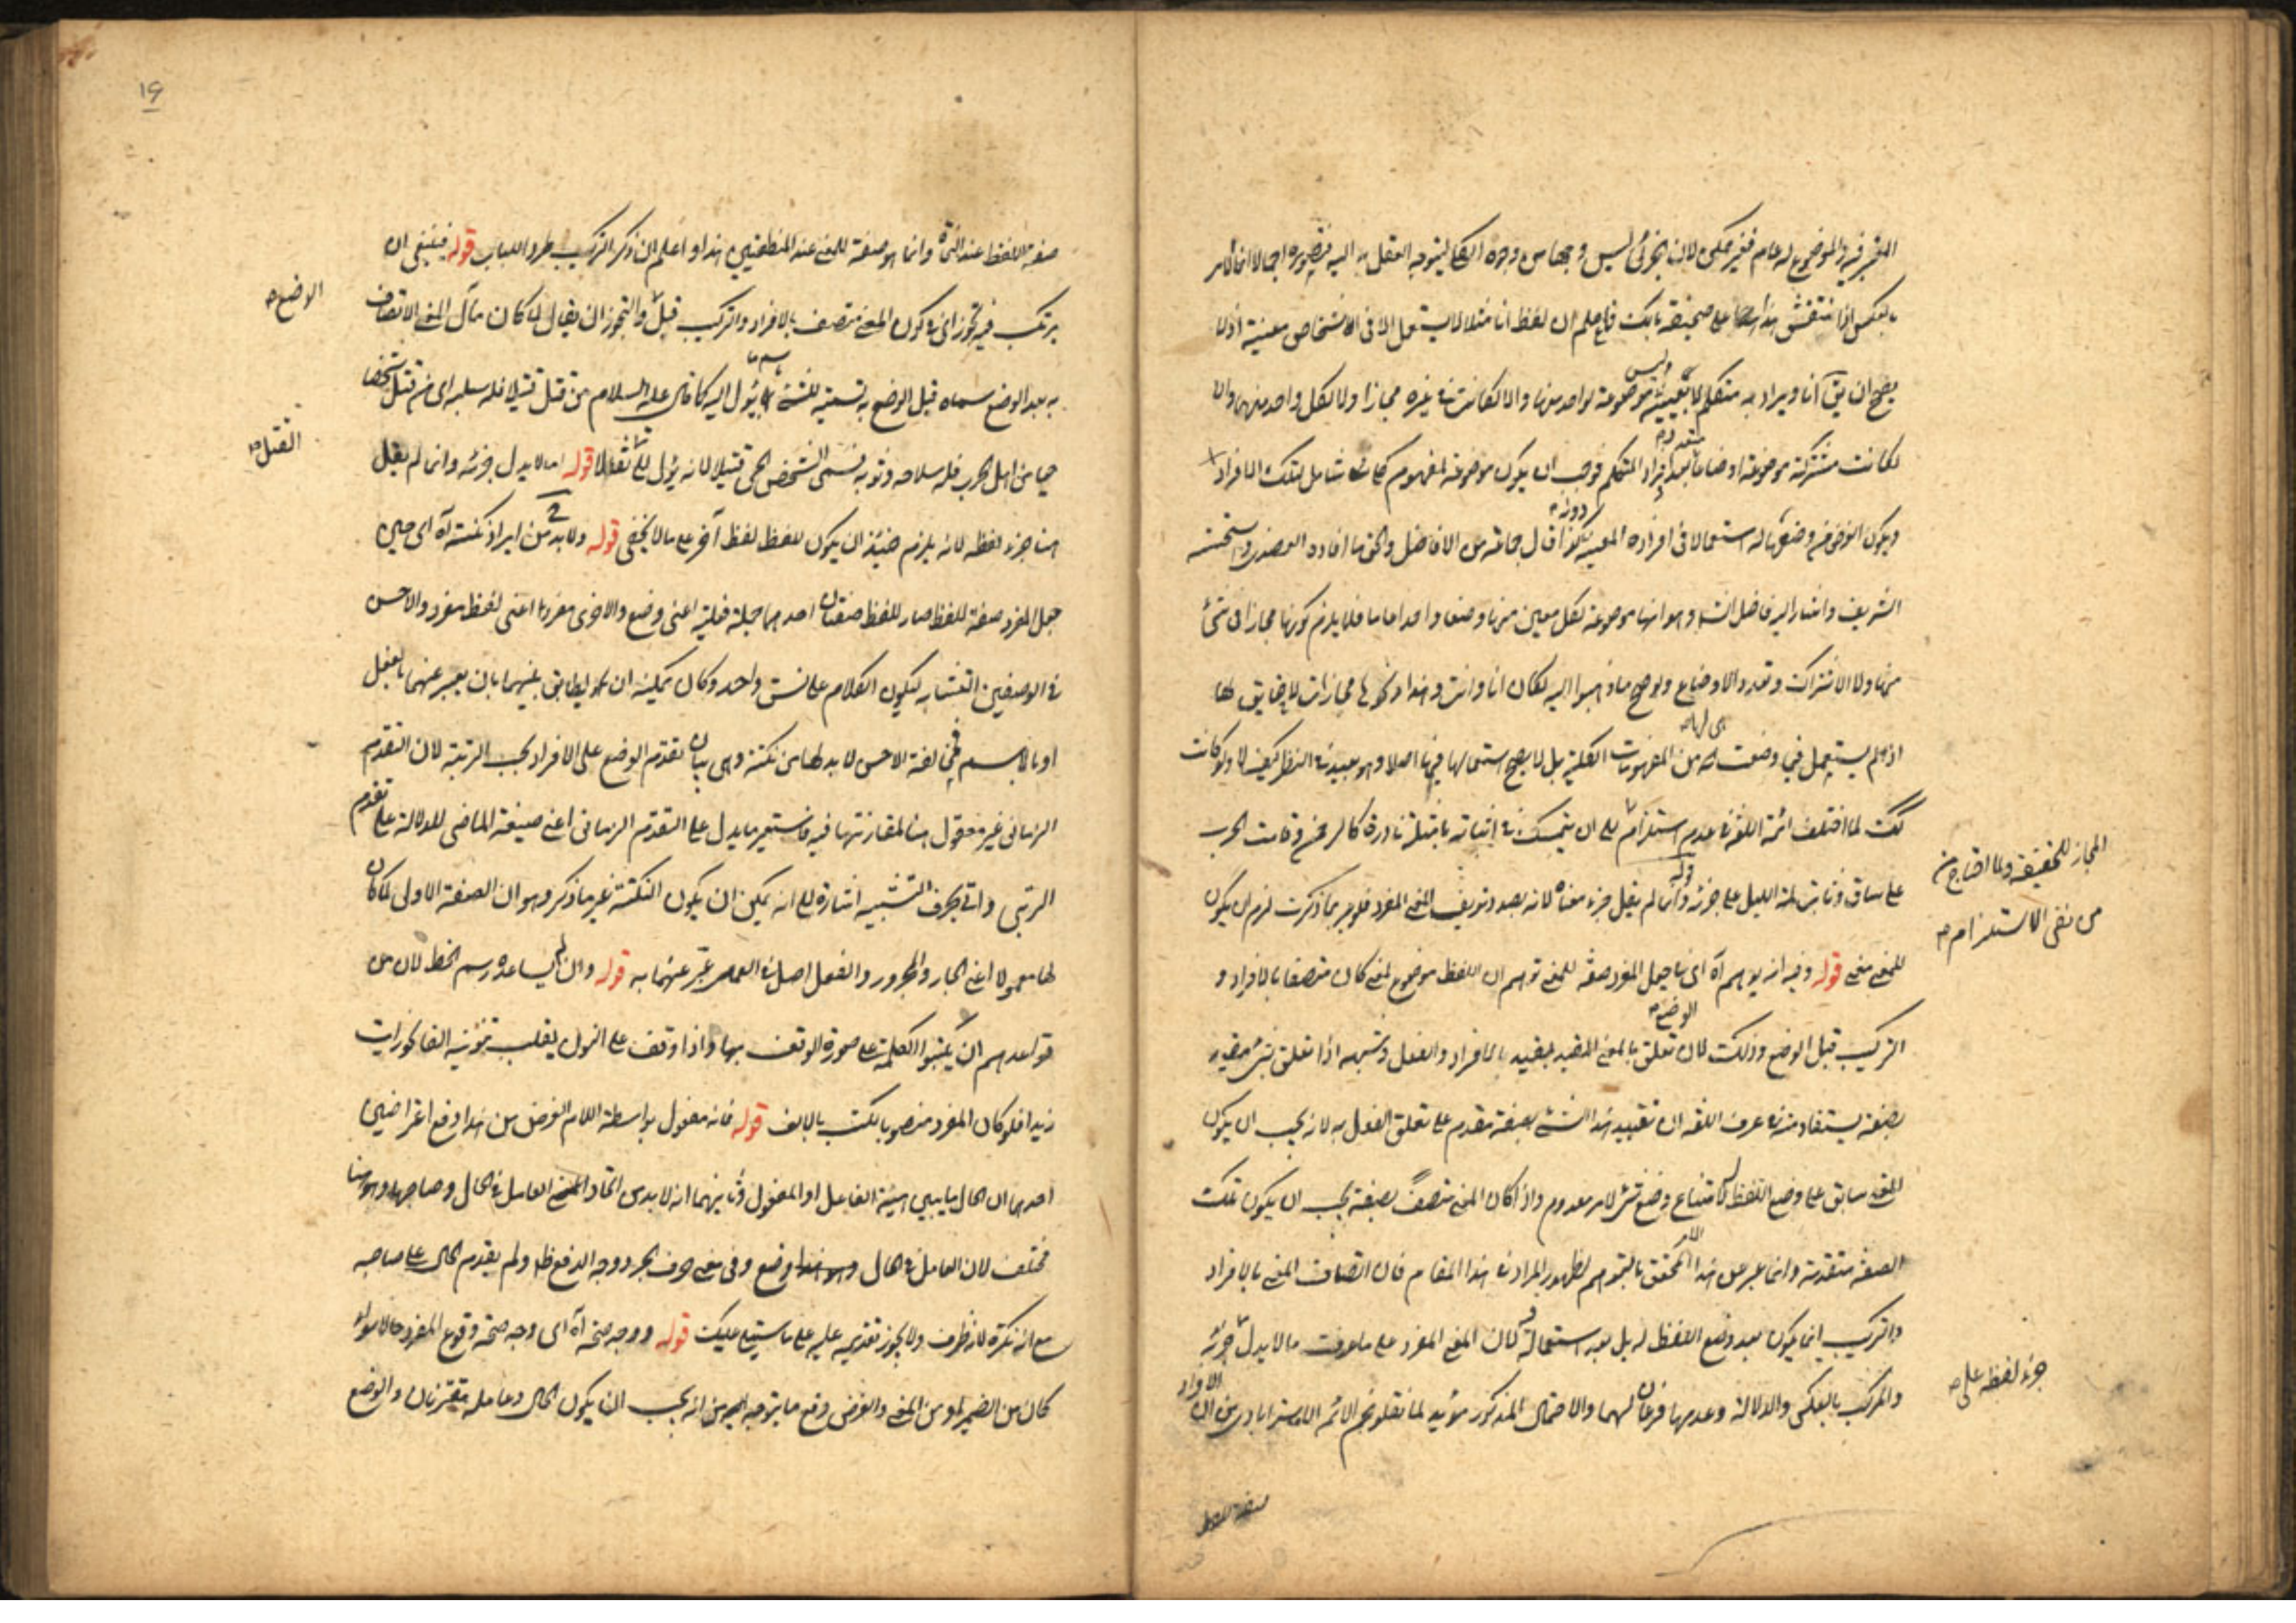 المعتبر فيه والموضوع له عام فغير ممكن لان الجزئي ليس وجها من وجوه الكلي ليتوجه العقل به اليه فيتصوره اجمالا انما الامر
بالعكس اذا انتقش هذا على صحيفة بالك فاعلم ان لفظ انا مثلا لا يستعمل الا في اشخاص معينة اذ لا
يصح ان يق انا ويراد به متكلم لا بعينه وليس موضوعة لواحد منها والا لكانت في غيره مجازا ولا لكل واحد منها والا
لكانت مشتركة موضوعة اوضاعا بعدد افراد المتكلم فوجب ان يكون موضوعة لمفهوم كلي شامل لتلك الافراد
ويكون الغرض من وضعها له استعمالا في افراده المعينة دونه هكذا قال جماعة من الافاضل والحق ما افاده العضدي واستحسنه
الشريف واشار اليه فاضل الشرح وهو انها موضوعة لكل معين منها وضعا واحدا عاما فلا يلزم كونها مجازا في شئ
منها ولا الاشتراك وتعدد الاوضاع ولو صح ما ذهبوا اليه لكان انا وانت وهذا مجازات لا حقايق لها
اذ لم يستعمل فيما وضعت هي لها من المفهومات الكلية بل لا يصح استعمالها فيها اصلا وهو بعيد في النظر كيف لا ولو كانت
كك لما اختلف ائمة اللغة في عدم استلزام المجاز للحقيقة ولما احتاج من نفى الاستلزام الى ان يتمسك في اثباته بامثلة نادرة كالرحمن وقامت الحرب
على ساق وشابت لمة الليل قوله على جزئه وانما لم يقل جزء معناه لانه بصدد تعريف المعنى المفرد فلو عبر بما ذكرت لزم ان يكون
للمعنى معنى قوله وفيه انه يوهم آه اى ما جعل المفرد صفة للمعنى توهم ان اللفظ موضوع لمعنى كان متصفا بالافراد و
التركيب قبل الوضع وذلك لان الوضع تعلق بالمعنى المقيد بقيد بالافراد والفعل وشبهه اذا تعلق بشئ مقيد
بصفة يستفاد منه في عرف اللغة ان تقييد هذا الشئ بصفة مقدم على تعلق الفعل به لانه يجب ان يكون
المعنى سابق على وضع اللفظ له لامتناع وضع شئ لامر معدوم واذا كان المعنى متصفا بصفة يجب ان يكون تلك
الصفة متقدمة وانما عبر عن هذا الامر المحقق بالتوهم لظهور المراد في هذا المقام فان اتصاف المعنى بالافراد
والتركيب انما يكون بعد وضع اللفظ له بل بعد استعماله فيه لان المعنى المفرد على ما عرفت ما لا يدل جزء لفظه على جزئه
والمركب بالعكس والدلالة وعدمها فرعان لهما والاحتمال المذكور مؤيد لما نقلوه نجم الائمة الاسترابادي من ان الافراد
صفة اللفظ
١٩
صفة اللفظ عند النحاة وانما هو صفة للمعنى عند المنطقيين هذا واعلم ان ذكر التركيب طردا للباب قوله فينبغي ان
يرتكب فيه تجوز اى في كون المعنى متصف بالافراد والتركيب قبل الوضع والتجوز ان يقال لما كان مآل المعنى الاتصاف
به بعد الوضع سماه قبل الوضع به تسمية للشئ باسم ما يؤول اليه كما قال عليه السلام من قتل قتيلا فله سلبه اى من قتل شخصا
حيا من اهل الحرب فله سلاحه وثوبه فسمى الشخص الحى قتيلا لانه يؤل الى القتل تفألا قوله اما لا يدل جزئه وانما لم يقل
هنا جزء لفظه لانه يلزم حينئذ ان يكون للفظ لفظ آخر على ما لا يخفى قوله ولا بد ح من ايراد نكتة آه اى حين
جعل المفرد صفة للفظ صار للفظ صفتان احدهما جملة فعلية اعنى وضع والاخرى مفردا اعنى لفظ مفرد والاحسن
في الوصفين التشابه ليكون الكلام على نسق واحد وكان يمكنه ان يطابق بينهما بان يعبر عنهما بالفعل
او بالاسم فمخالفة الاحسن لا بد لها من نكتة وهى بيان تقدم الوضع على الافراد بحسب الرتبة لان التقدم
الزمانى غير معقول هنا لمقارنتهما فيه فاستعير ما يدل على التقدم الزمانى اعنى صيغة الماضى للدلالة على تقدم
الرتبى واتى بحرف التشبيه اشارة الى انه يمكن ان يكون النكتة غير ما ذكر وهو ان الصفة الاولى لما كان
لها معمولا اعنى الجار والمجرور والفعل اصل في العمل عبر عنهما به قوله وان لم يساعده رسم الخط لان من
قواعدهم ان يكتبوا الكلمة على صورة الوقف بها واذا وقف على المنون يقلب تنوينه الفا كرايت
زيدا فلو كان المفرد منصوبا لكتب بالالف قوله فانه مفعول بواسطة اللام الغرض من هذا دفع اعتراضين
احدهما ان الحال ما يبين هيئة الفاعل او المفعول وثانيهما انه لا بد من اتحاد العامل في الحال وصاحبها وهو هنا
مختلف لان العامل في الحال وضع وفي معنى حرف الجر ووجه الدفع ظ ولم يقدم الحال على صاحبه
مع انه نكرة لانه ظرف ولا يجوز تقديمه عليه على ما سيتلى عليك قوله ووجه صحته آه اى وجه صحة وقوع المفرد حالا سواء
كان من الضمير او من المعنى والغرض دفع ما يتوجه من انه يجب ان يكون الحال وعامله مقترنان والوضع